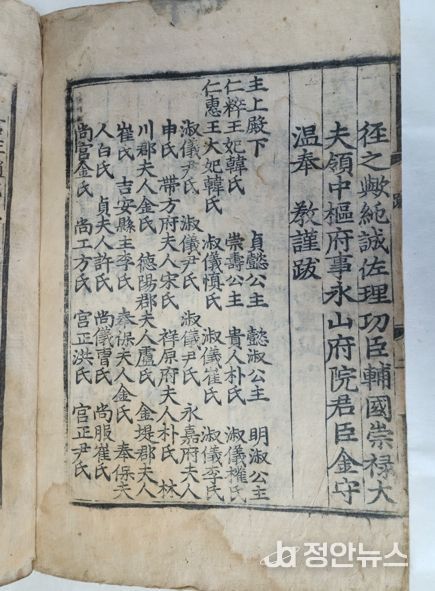 徑之歟純誠佐理功臣輔國崇祿大
夫領中樞府事永山府院君臣金守
溫奉 敎謹跋
主上殿下 貞懿公主 懿淑公主 明淑公主
仁粹王妃韓氏 崇壽公主 貴人朴氏 淑儀權氏
仁惠王大妃韓氏 淑儀愼氏 淑儀崔氏 淑儀李氏
淑儀尹氏 淑儀尹氏 淑儀尹氏 永嘉府夫人
申氏 帶方府夫人宋氏 梓原府夫人朴氏 林
川郡夫人金氏 德陽郡夫人盧氏 金堤郡夫人
崔氏 吉安縣主李氏 奉保夫人金氏 奉保夫
人白氏 貞夫人許氏 尙儀曺氏 尙服崔氏
尙宮金氏 尙工方氏 宮正洪氏 宮正尹氏
정안뉴스